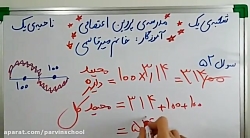 ناحیه‌ی یک
مدرسه‌ی پروین اعتصامی
شعبه‌ی یک
آموزگار: خانم میرقاسمی
سوال ۵۲
محیط دایره = ۱۰۰ × ۳/۱۴ = ۳۱۴/۰۰
۱۰۰ ۱۰۰
محیط کل = ۳۱۴ + ۱۰۰ + ۱۰۰
= ۵
aparat.com/parvinschool